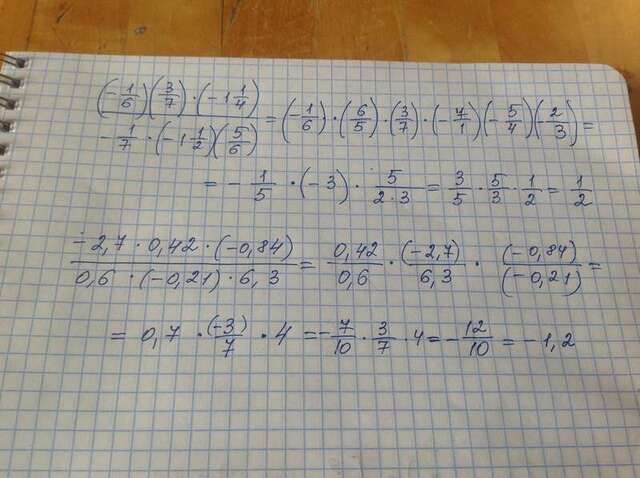 (-1/6)(3/7)·(-1 1/4) / -1/7·(-1 1/2)(5/6) = (-1/6)·(6/5)·(3/7)·(-7/1)(-5/4)(-2/3)=
= -1/5·(-3)·5/2·3 = 3/5·5/3·1/2 = 1/2
-2,7·0,42·(-0,84) / 0,6·(-0,21)·6,3 = 0,42/0,6·(-2,7)/6,3·(-0,84)/(-0,21)=
= 0,7·(-3)/7·4 = -7/10·3/7·4 = -12/10 = -1,2